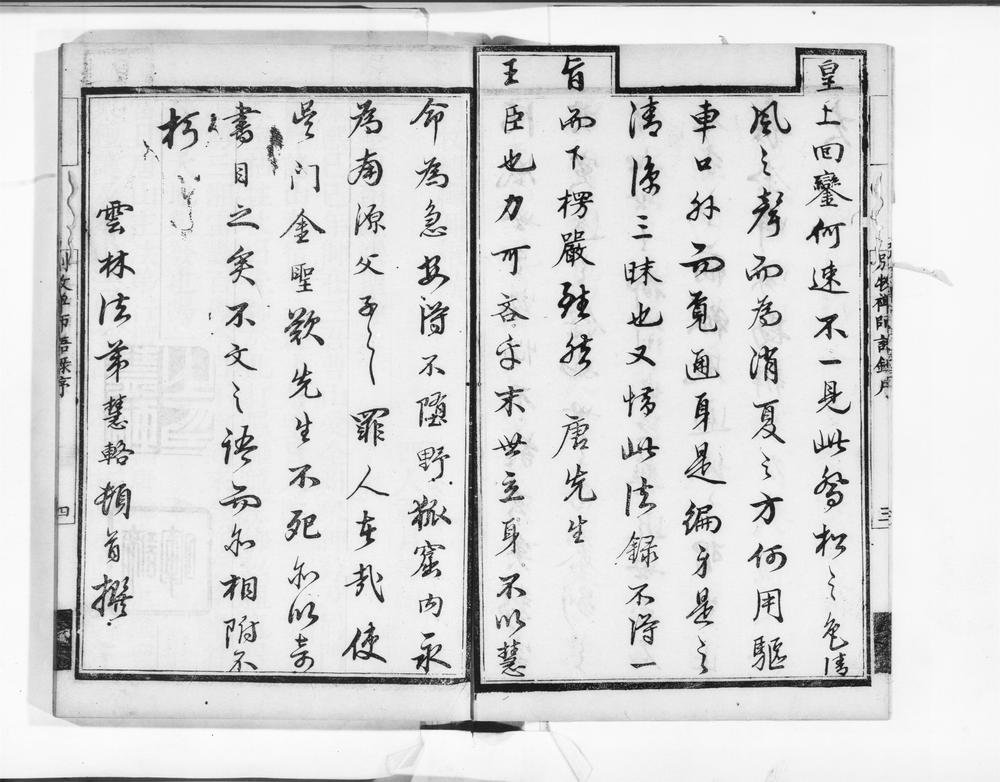 皇上回鑾何速不一見此喬松之色清
風之聲而為消夏之方何用驅
車口外而覓通身是徧身是之
清涼三昧也又惜此法錄不得一
旨而下楞嚴雖然唐先生
王臣也力可吞乎末世立身不以慧
命為急安得不墮野狐窟內永
為南源父子之罪人哉使
吳門金聖歎先生不死亦以奇
書目之矣不文之語而亦相附不
朽
雲林法弟慧輅頓首撰
禪師語錄序
三
師語錄序
四